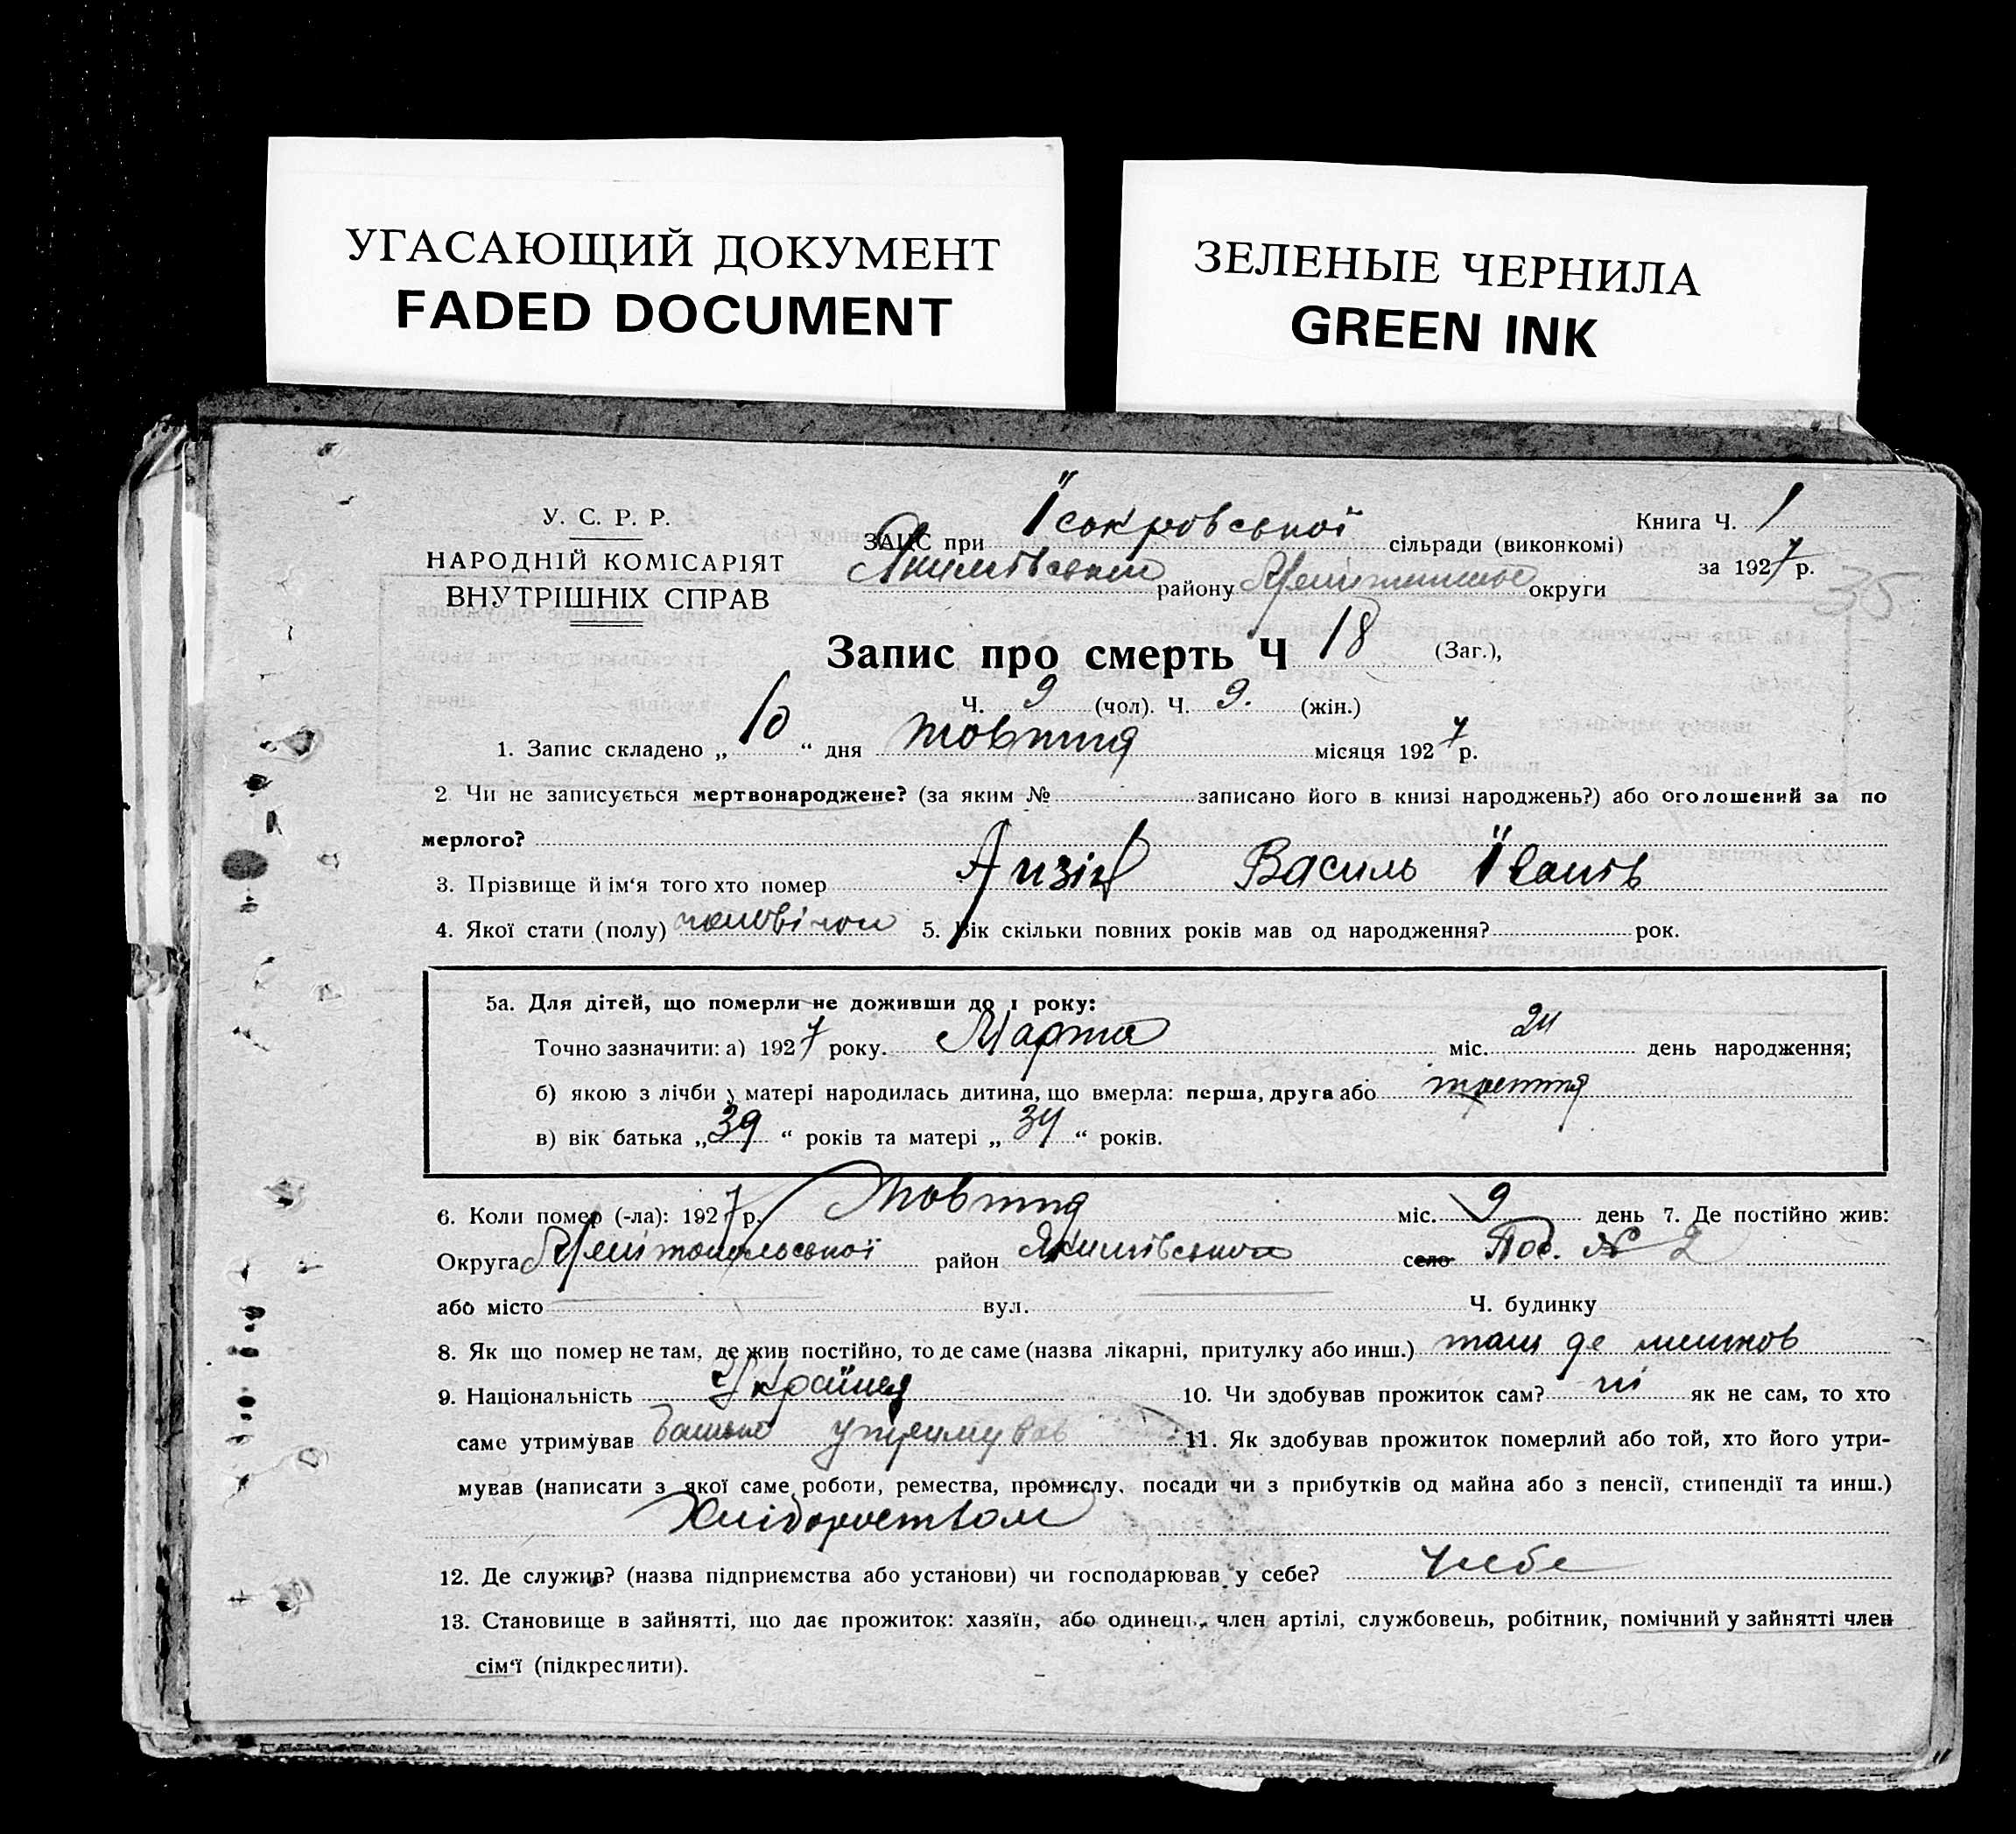 УГАСАЮЩИЙ ДОКУМЕНТ
FADED DOCUMENT
ЗЕЛЕНЫЕ ЧЕРНИЛА
GREEN INK
У. С. Р. Р.
НАРОДНІЙ КОМІСАРІЯТ
ВНУТРІШНІХ СПРАВ
ЗАЦС при Їсокровської сільради (виконкомі)
району округи
Книга Ч. 1
за 1927 р.
35
Запис про смерть Ч 18 (Заг.),
Ч. 9 (чол). Ч. 9. (жін.)
1. Запис складено „10“ дня жовтня місяця 1927 р.
2. Чи не записується мертвонароджене? (за яким № записано його в книзі народжень?) або оголошений за по
мерлого?
3. Прізвище й ім'я того хто помер Василь Їванів
4. Якої стати (полу) 5. Вік скільки повних років мав од народження? рок.
5а. Для дітей, що померли не доживши до 1 року:
Точно зазначити: а) 1927 року. Марта міс. 24 день народження;
б) якою з лічби у матері народилась дитина, що вмерла: перша, друга або треття
в) вік батька „39“ років та матері „34“ років.
6. Коли помер (-ла): 1927 р. Жовтня міс. 9 день 7. Де постійно жив:
Округа Мелітопольської район Якимівського село Поб. № 2
або місто вул. Ч. будинку
8. Як що помер не там, де жив постійно, то де саме (назва лікарні, притулку або инш.) там де
9. Національність Українец 10. Чи здобував прожиток сам? ні як не сам, то хто
саме утримував батько утримував 11. Як здобував прожиток померлий або той, хто його утри-
мував (написати з якої саме роботи, ремества, промислу, посади чи з прибутків од майна або з пенсії, стипендії та инш.)
Хліборобством
12. Де служив? (назва підприємства або установи) чи господарював у себе? У себе
13. Становище в зайнятті, що дає прожиток: хазяїн, або одинець, член артілі, службовець, робітник, помічний у зайнятті член
сім'ї (підкреслити).